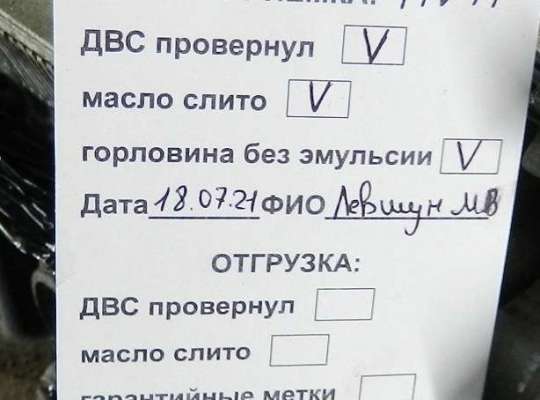 ДВС провернул V
масло слито V
горловина без эмульсии V
Дата 18.07.21 ФИО Левшун МВ
ОТГРУЗКА:
ДВС провернул
масло слито
гарантийные метки